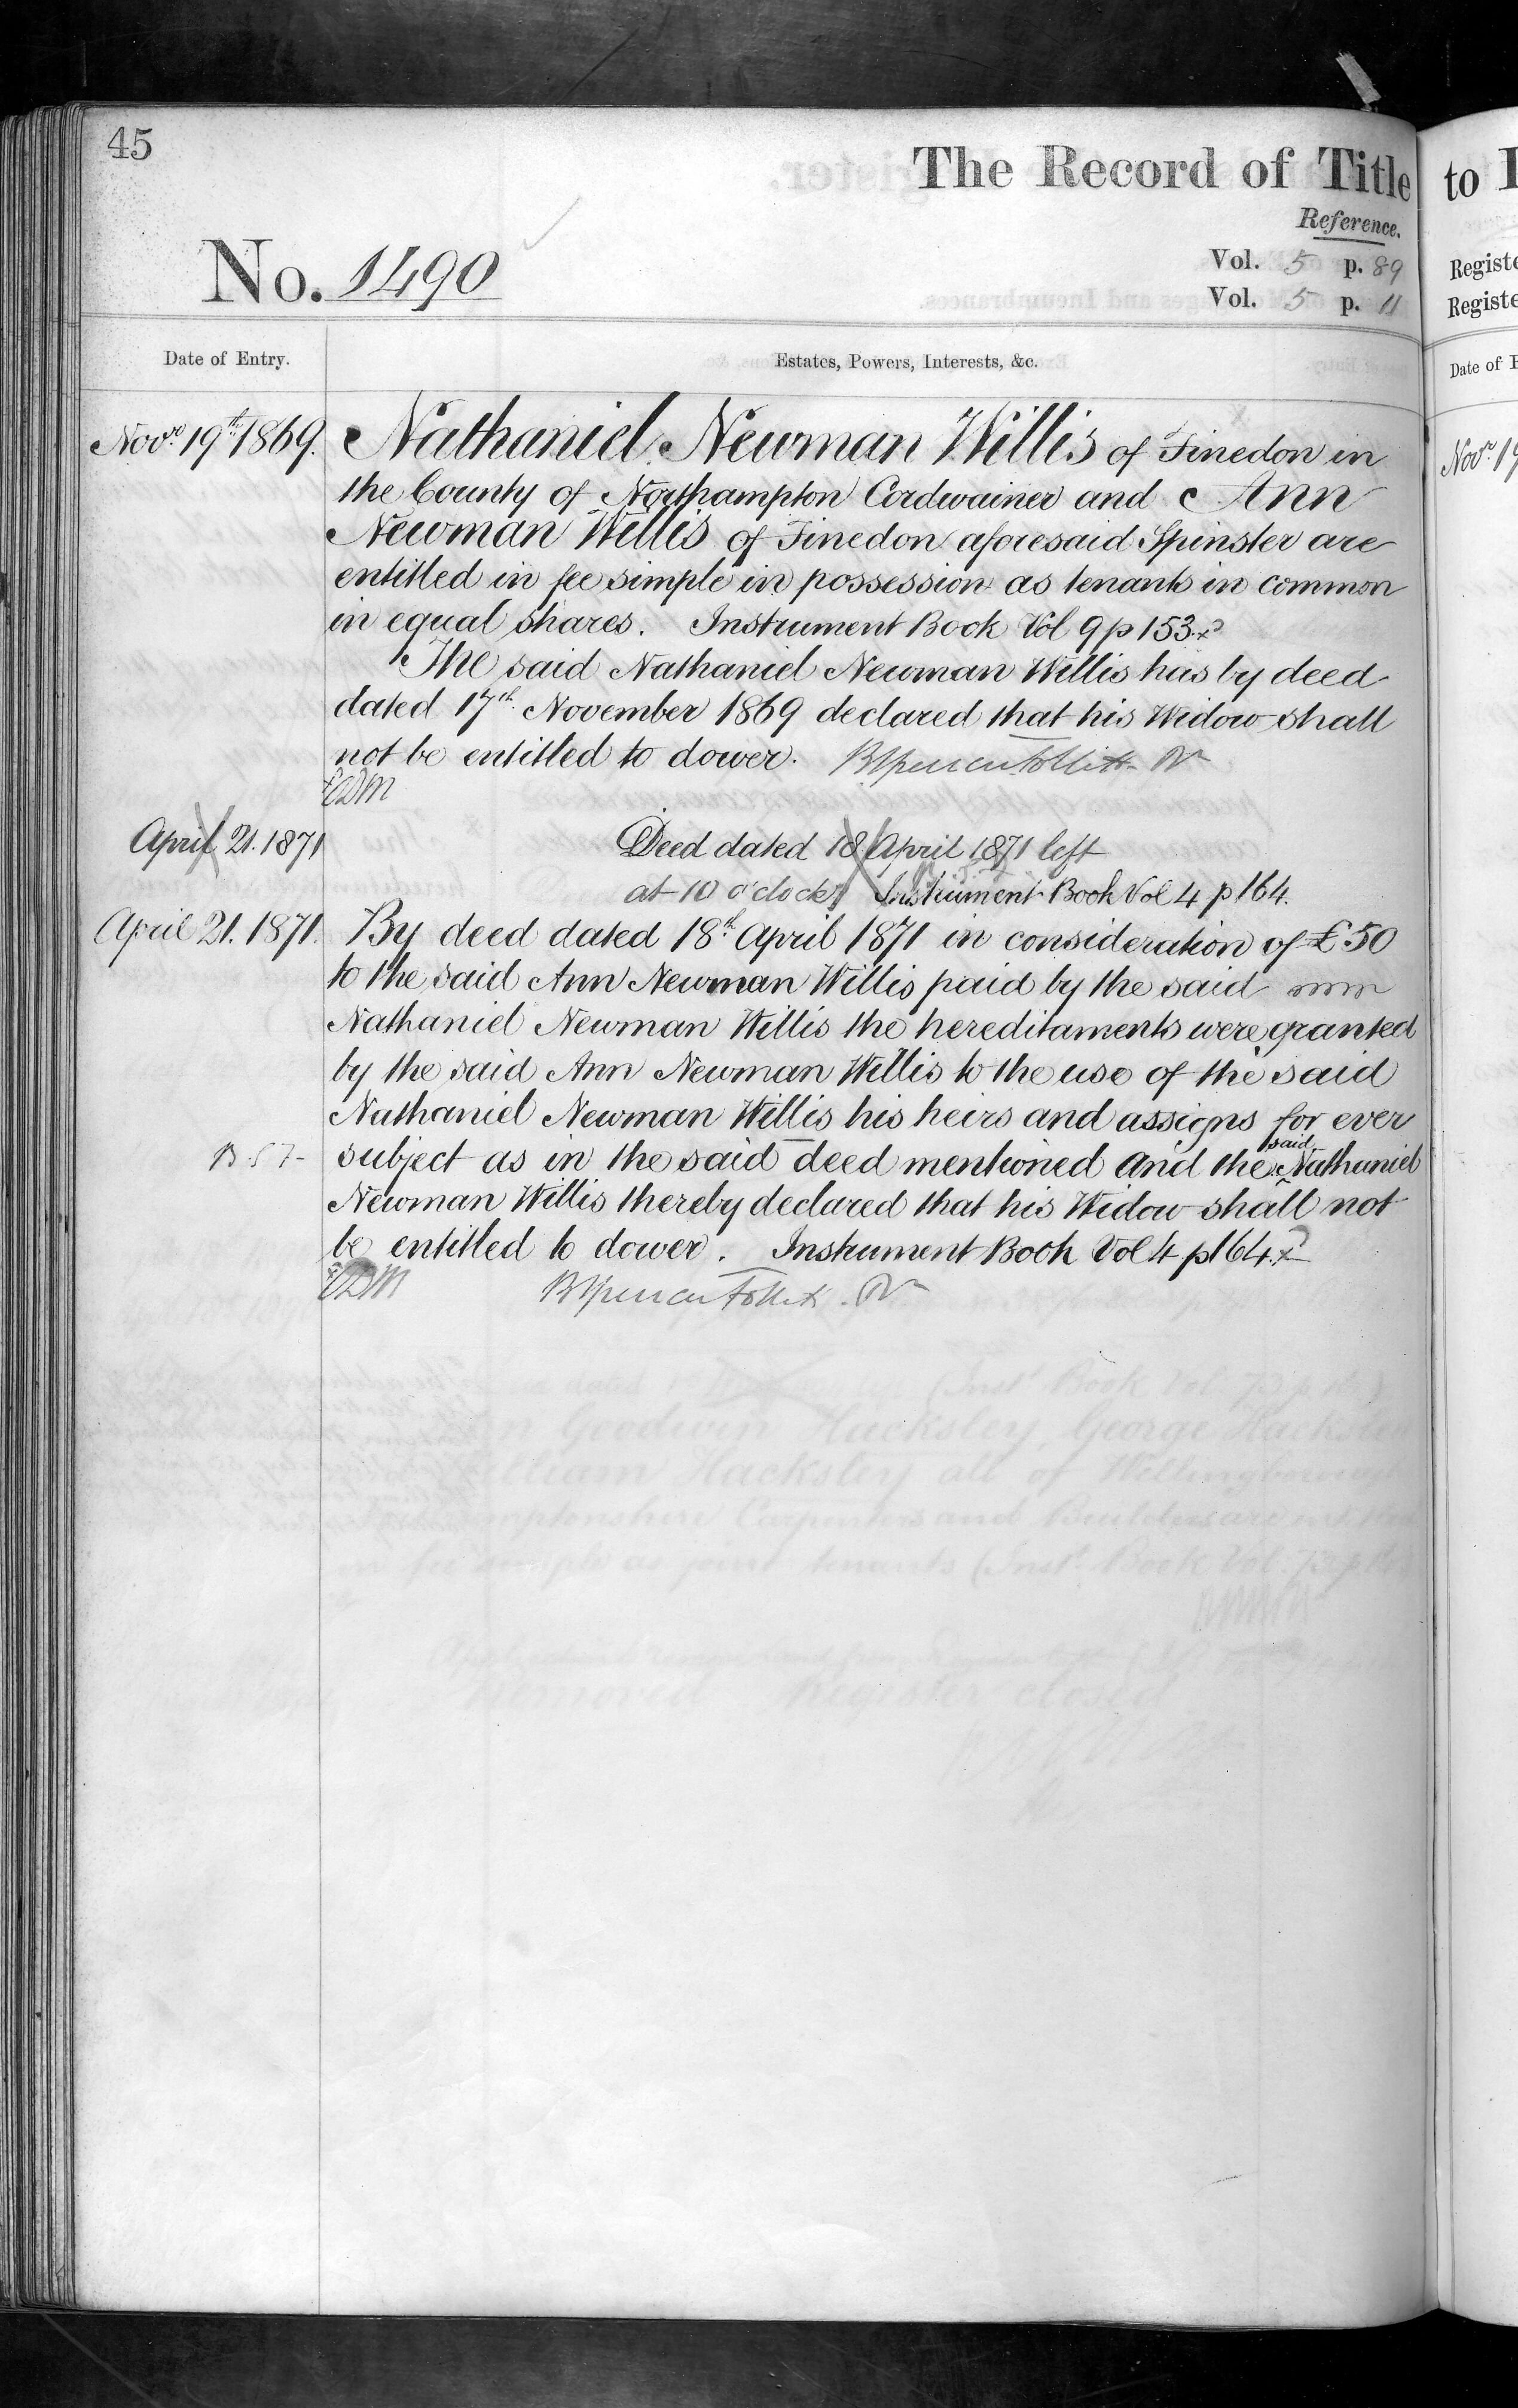 45
The Record of Title
Reference.
No. 1490
Vol. 5 p. 89
Vol. 5 p. 11
Date of Entry.
Estates, Powers, Interests, &c.
Novr. 19th 1869.
Nathaniel Newman Willis of Finedon in
the County of Northampton Cordwainer and Ann
Newman Willis of Finedon aforesaid Spinster are
entitled in fee simple in possession as tenants in common
in equal shares. Instrument Book Vol 9 p 153.
The said Nathaniel Newman Willis has by deed
dated 17th November 1869 declared that his Widow shall
not be entitled to dower.
April 21. 1871
Deed dated 18 April 1871 left
at 10 o'clock Instrument Book Vol 4 p 164.
April 21. 1871.
By deed dated 18th April 1871 in consideration of £50
to the said Ann Newman Willis paid by the said
Nathaniel Newman Willis the hereditaments were granted
by the said Ann Newman Willis to the use of the said
Nathaniel Newman Willis his heirs and assigns for ever
subject as in the said deed mentioned and the said Nathaniel
Newman Willis thereby declared that his Widow shall not
be entitled to dower. Instrument Book Vol 4 p 164.
to
Registe
Registe
Date of E
Novr. 19